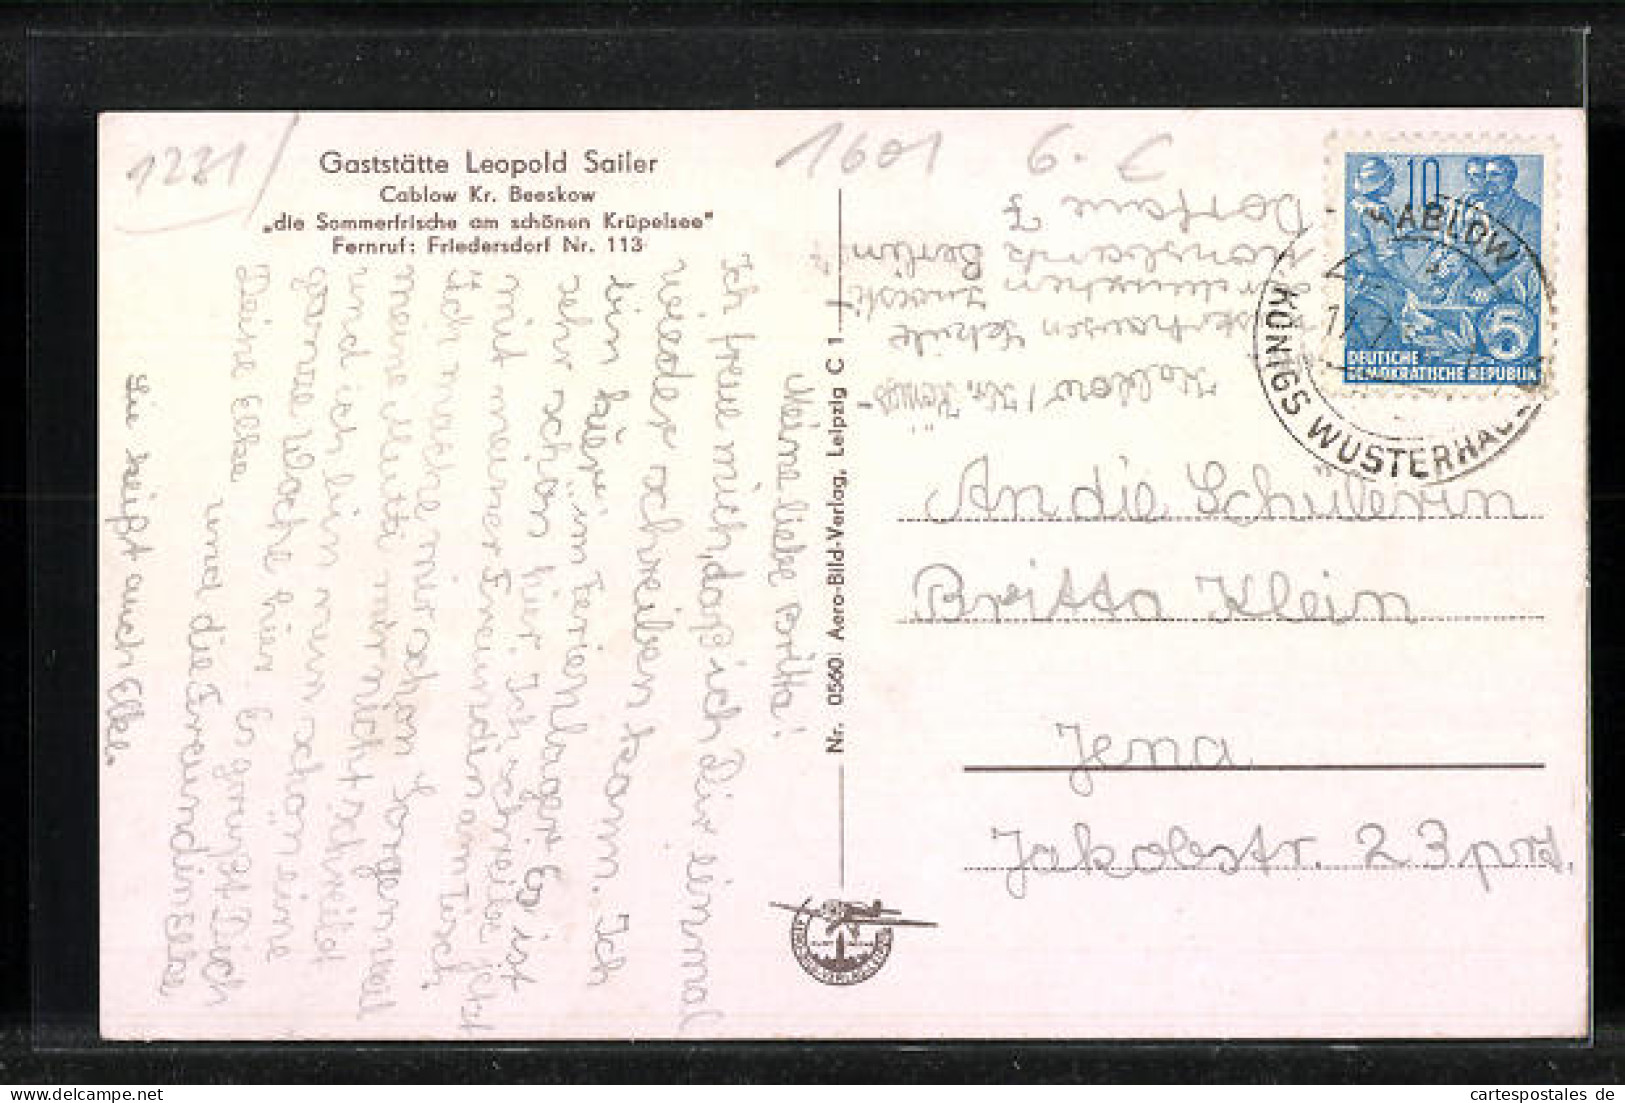 1221/
Gaststätte Leopold Sailer
Cablow Kr. Beeskow
„die Sommerfrische am schönen Krüpelsee"
Fernruf: Friedersdorf Nr. 113
1601
6.-
Meine liebe Britta!
Ich freue mich, daß ich Dir einmal
wieder schreiben kann. Ich
bin hier im Ferienlager. Es ist
sehr schön hier. Ich schreibe jetzt
mit meiner Freundin am Tisch.
Ich mache mir schon Sorgen weil
meine Mutti mir nicht schreibt
und ich bin nun schon eine
ganze Woche hier. Es grüßt Dich
Deine Elke und die Freundin Elke
Sie heißt auch Elke.
Nr. 0560 Aero-Bild-Verlag, Leipzig C 1
Kablow / Kr. Königs-
Schule
Berlin
CABLOW
KÖNIGS WUSTERHAU
17.7
10
5
DEUTSCHE
DEMOKRATISCHE REPUBLIK
An die Schülerin
Britta Klein
Jena
Jakobstr. 23 prt.
cartespostales de